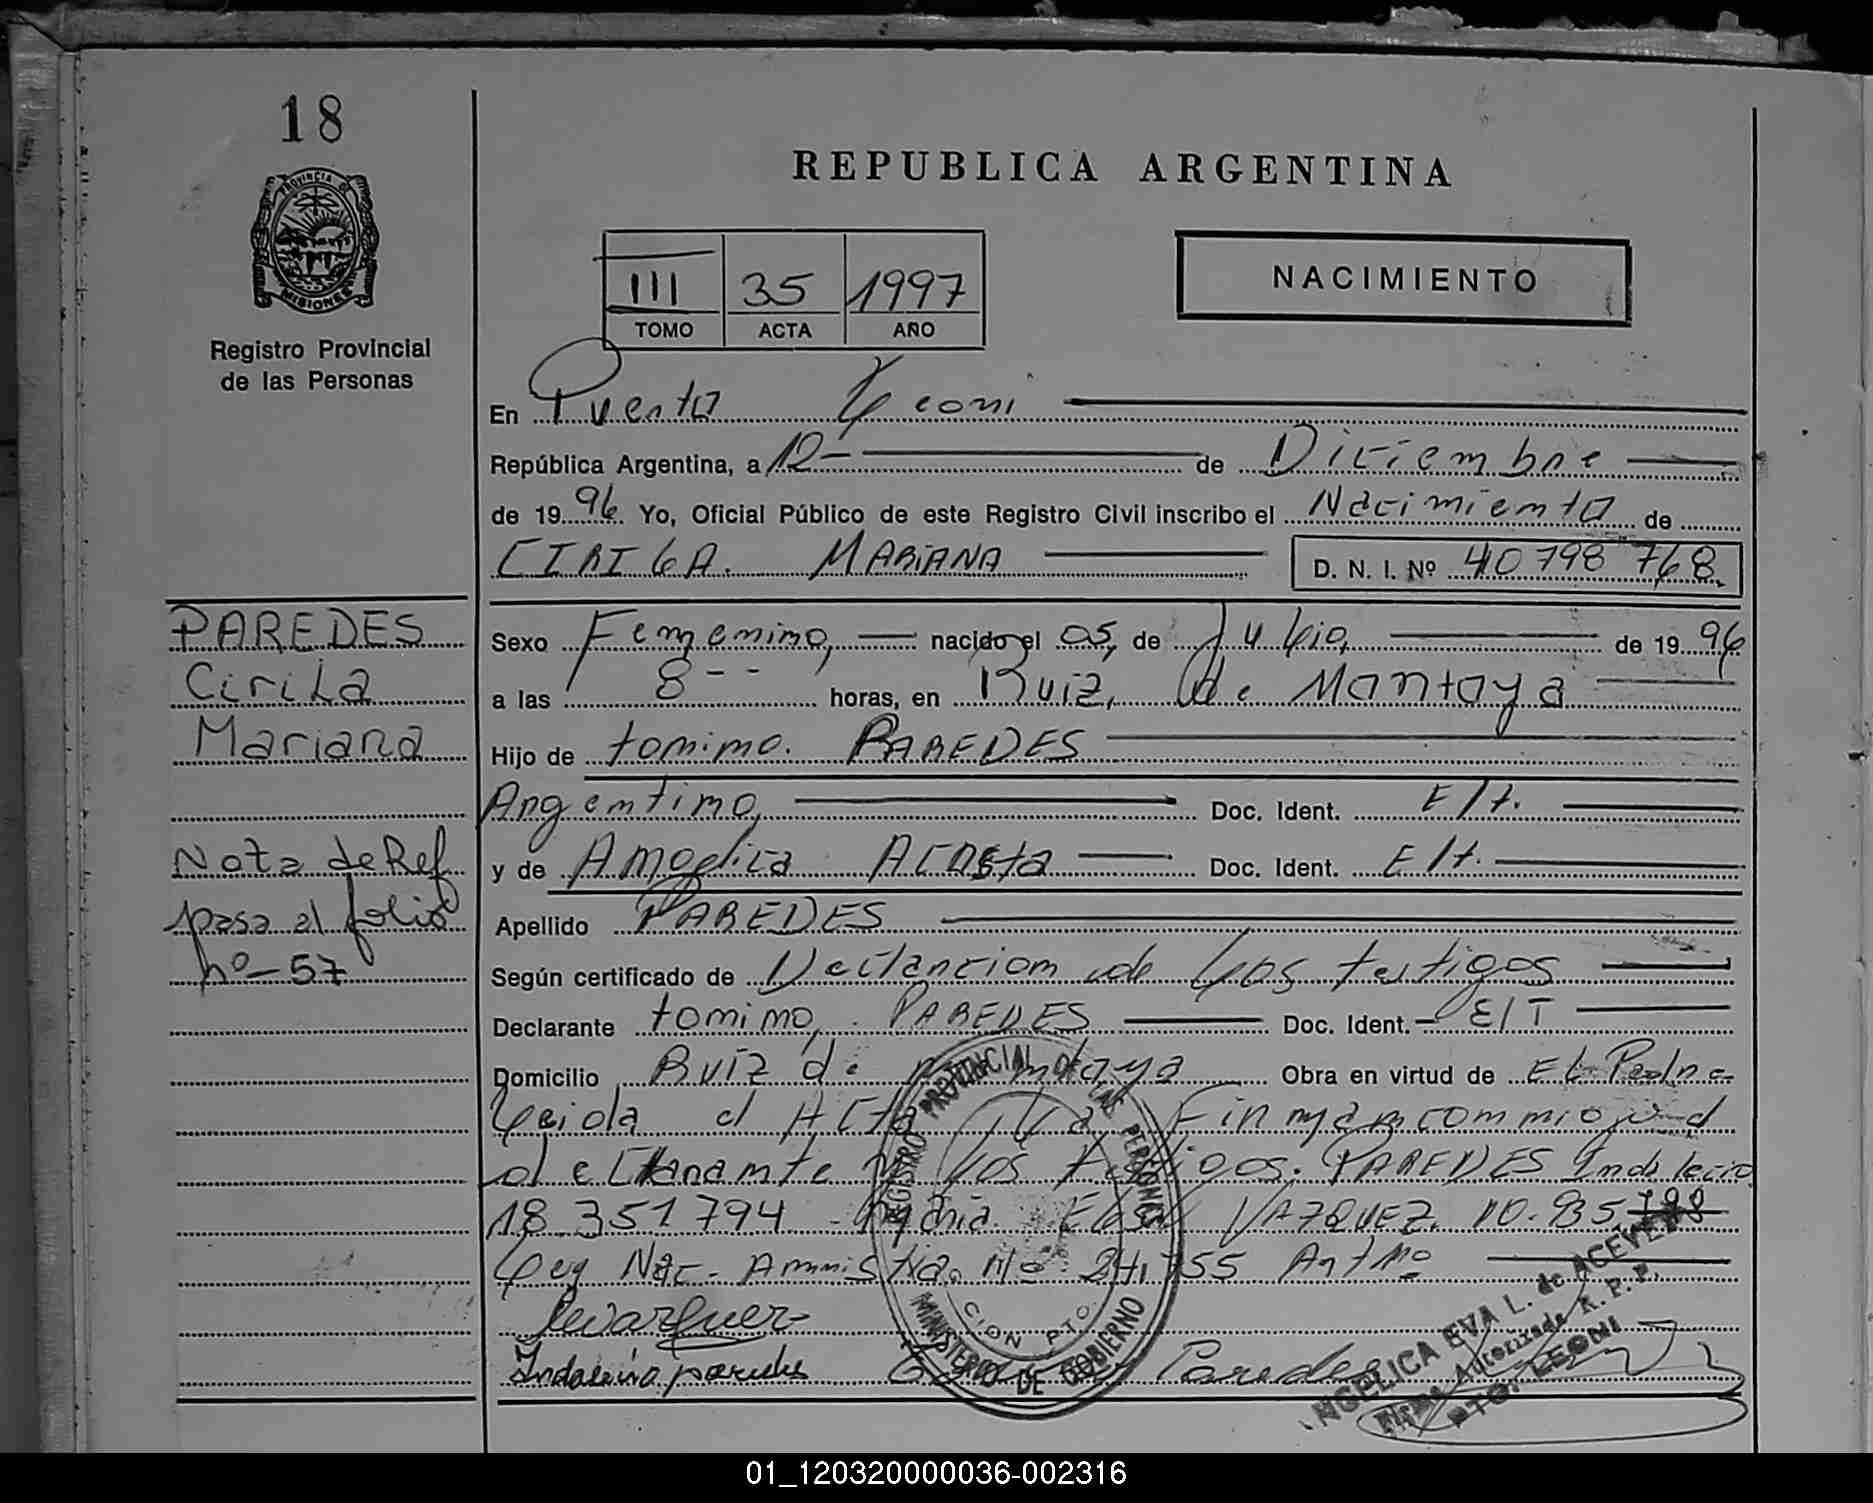 18
PROVINCIA DE
MISIONES
Registro Provincial
de las Personas
REPUBLICA ARGENTINA
III 35 1997
TOMO ACTA AÑO
NACIMIENTO
En Puerto Leoni
República Argentina, a 12 de Diciembre
de 1996 Yo, Oficial Público de este Registro Civil inscribo el Nacimiento de
CIRILA. MARIANA D. N. I. Nº 40798768.
PAREDES
Cirila
Mariana
Nota de Ref
pasa al folio
nº-57
Sexo Femenino, nacido el 05, de Julio, de 1996
a las 8-- horas, en Ruiz, de Montoya
Hijo de tomimo. PAREDES
Argentino, Doc. Ident. E/t.
y de Angelica Acosta Doc. Ident. E/t.
Apellido PAREDES
Según certificado de Declaracion de Los testigos
Declarante tomimo, PAREDES Doc. Ident. E/T
Domicilio Ruiz de Montoya Obra en virtud de EL Padre
Leida el Acta La Firman conmigo el
declarante y Los testigos. PAREDES Indalecio
18.351794 Maria Elsa VAZQUEZ. 10.935.798
Ley Nac- Amnistia. Nº 24.755 Art Nº
Indalecio paredes
Paredes
REGISTRO PROVINCIAL DE LAS PERSONAS
MINISTERIO DE GOBIERNO
CION PTO.
ANGELICA EVA L. de ACEVEDO
Firma Autorizada R. P. P.
PTO. LEONI
01_120320000036-002316